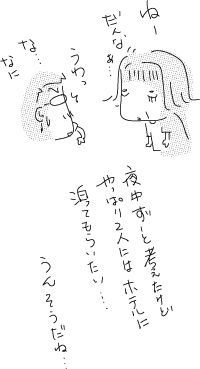 ねー
だんなぁ…
うわっ
な…
なに
夜中ずーと考えたけど
やっぱり2人にはホテルに
泊ってもらいたい……
うんそうだね…